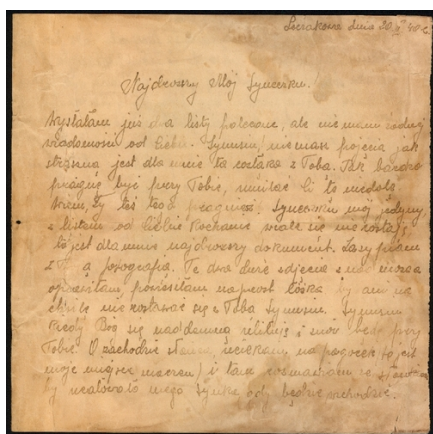 dnia 20 48 r.
Najdroższy Mój Syneczku!
Wysłałam już dwa listy polecone, ale nie mam żadnej
wiadomości od Ciebie. Synusiu, nie masz pojęcia jak
straszną jest dla mnie ta rozłąka z Tobą. Tak bardzo
pragnę być przy Tobie,
wiem, Ty też tego pragniesz. Syneczku mój jedyny
z listem od Ciebie Kochanie wcale się nie rozstaję,
to jest dla mnie najdroższy dokument.
a fotografia. Te dwa duże zdjęcia
oprawiłam, powiesiłam naprzeciw łóżka by ani na
chwilę nie rozstawać się z Tobą Synusiu. Synusiu
kiedy Bóg się nademną zlituje i znów będę przy
Tobie. O zachodzie słońca, uciekam na pagórek to jest
moje miejsce marzeń i tam
by ucałowało mego Synka gdy będzie wschodzić.